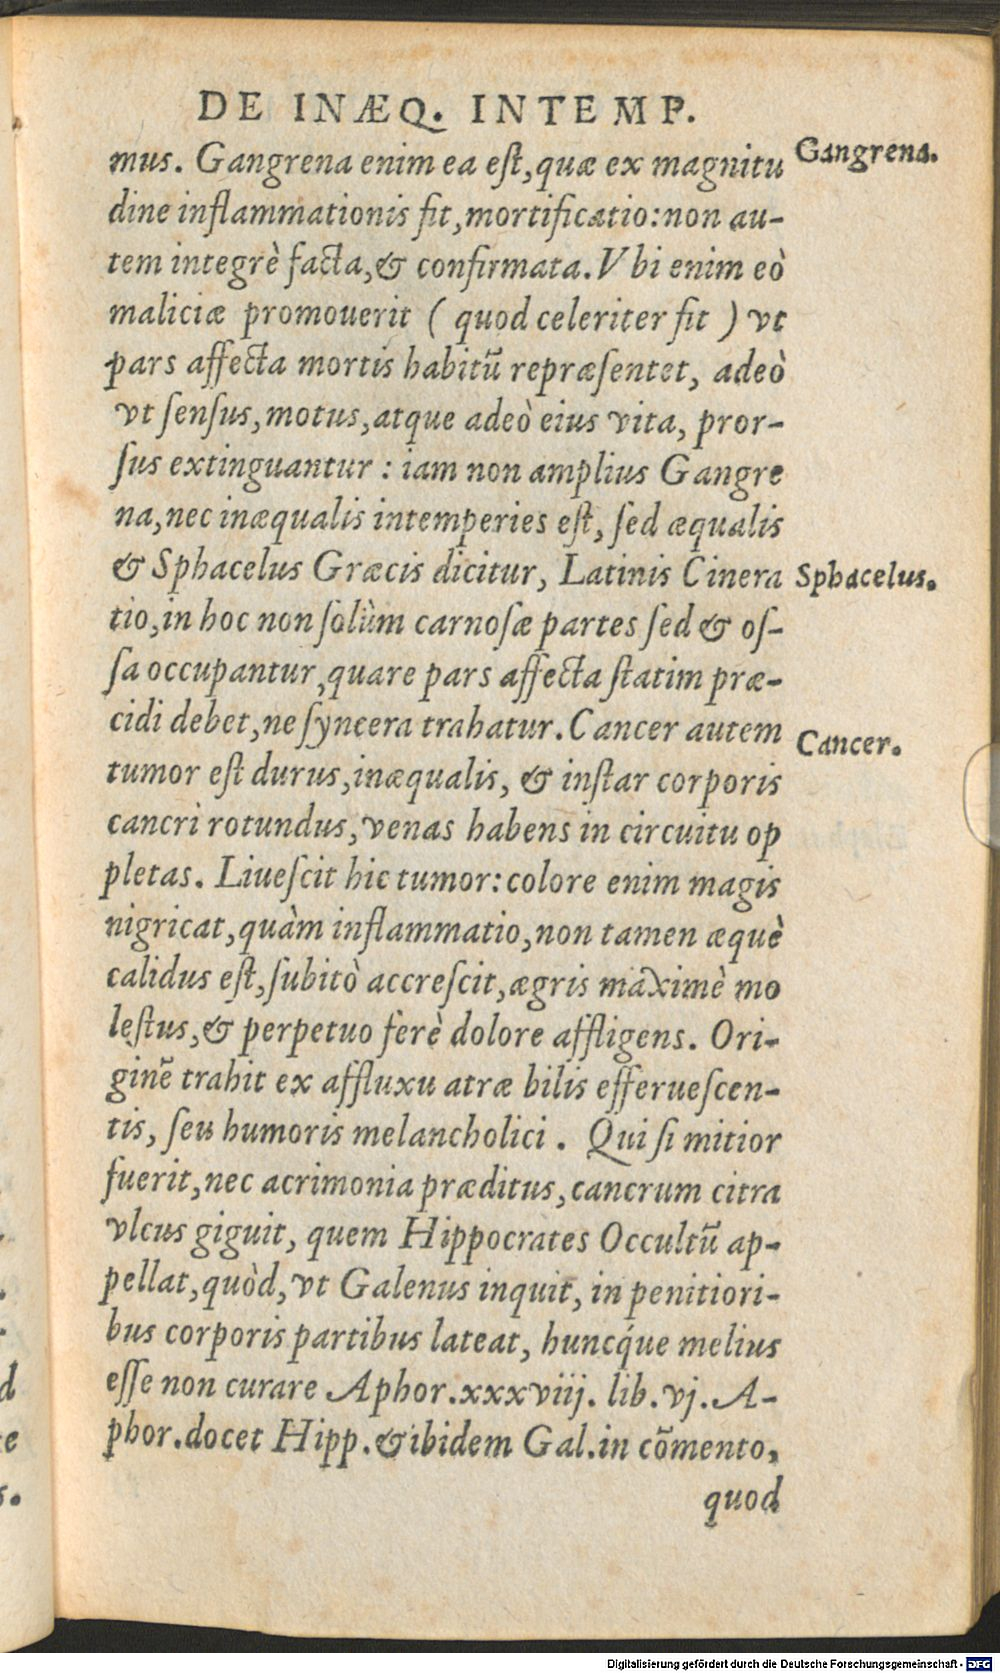 DE INÆQ. INTEMP.
mus. Gangrena enim ea eſt, quæ ex magnitu
Gangrena.
dine inflammationis fit, mortificatio: non au-
tem integrè facta, & confirmata. Vbi enim eò
maliciæ promouerit ( quod celeriter fit ) vt
pars affecta mortis habitū repræſentet, adeò
vt ſenſus, motus, atque adeò eius vita, pror-
ſus extinguantur : iam non amplius Gangre
na, nec inæqualis intemperies eſt, ſed æqualis
& Sphacelus Græcis dicitur, Latinis Cinera
Sphacelus.
tio, in hoc non ſolùm carnoſæ partes ſed & oſ-
ſa occupantur, quare pars affecta ſtatim præ-
cidi debet, ne ſyncera trahatur. Cancer autem
Cancer.
tumor eſt durus, inæqualis, & inſtar corporis
cancri rotundus, venas habens in circuitu op
pletas. Liueſcit hic tumor: colore enim magis
nigricat, quàm inflammatio, non tamen æquè
calidus eſt, ſubitò accreſcit, ægris maximè mo
leſtus, & perpetuo ferè dolore affligens. Ori-
ginē trahit ex affluxu atræ bilis efferueſcen-
tis, ſeu humoris melancholici. Qui ſi mitior
fuerit, nec acrimonia præditus, cancrum citra
vlcus giguit, quem Hippocrates Occultū ap-
pellat, quòd, vt Galenus inquit, in penitiori-
bus corporis partibus lateat, huncq́ue melius
eſſe non curare Aphor. xxxviij. lib. vj. A-
phor. docet Hipp. & ibidem Gal. in cōmento,
quod
Digitalisierung gefördert durch die Deutsche Forschungsgemeinschaft - DFG